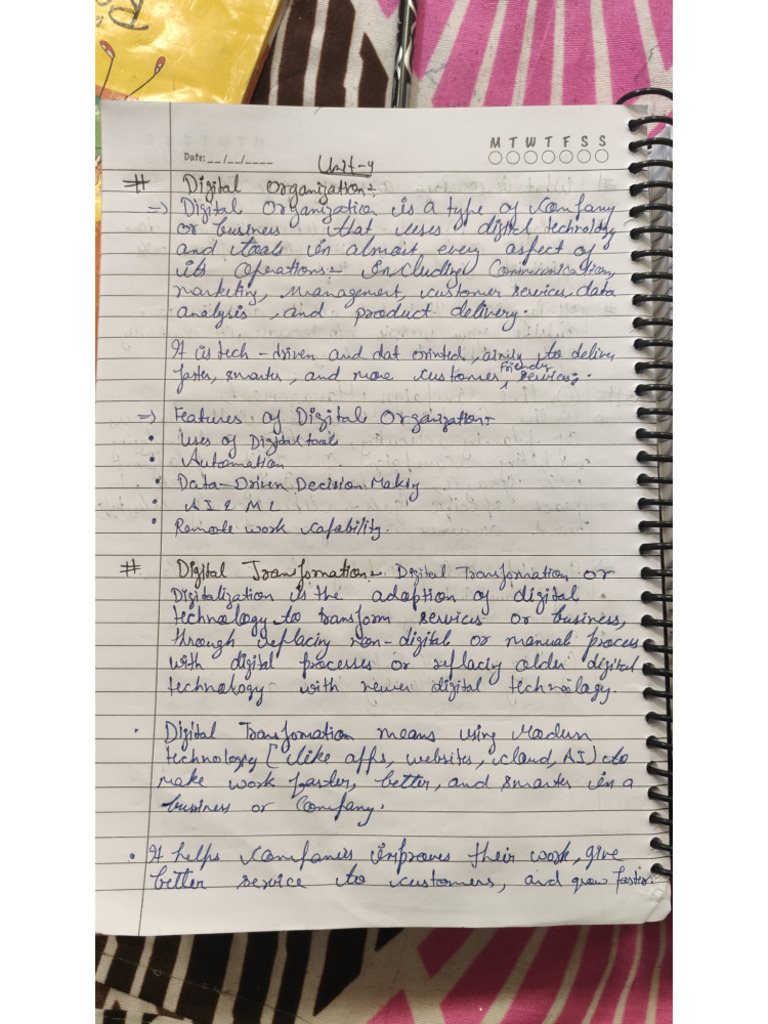 M T W T F S S
Date: __/__/____
Unit-4
# Digital Organization:-
=> Digital Organization is a type of Company
or business that uses digital technology
and tools in almost every aspect of
its operations:- Including Communication,
marketing, Management, customer services, data
analysis, and product delivery.
It is tech-driven and dat orinted, aimly to deliver
faster, smarter, and more customer Friendly services.
=> Features of Digital Organization:-
• Uses of Digital tools
• Automation
• Data-Driven Decision Making
• AI & ML
• Remote work capability.
# Digital Transfomation:- Digital Transfomation or
Digitalization is the adoption of digital
technology to transform services or business,
through replacing non-digital or manual process
with digital processes or replacing older digital
technology with newer digital technology.
• Digital Transfomation means using Modern
technology [like apps, websites, cloud, AI) to
make work faster, better, and smarter in a
business or Company.
• It helps Companies improves their work, give
better service to customers, and grow